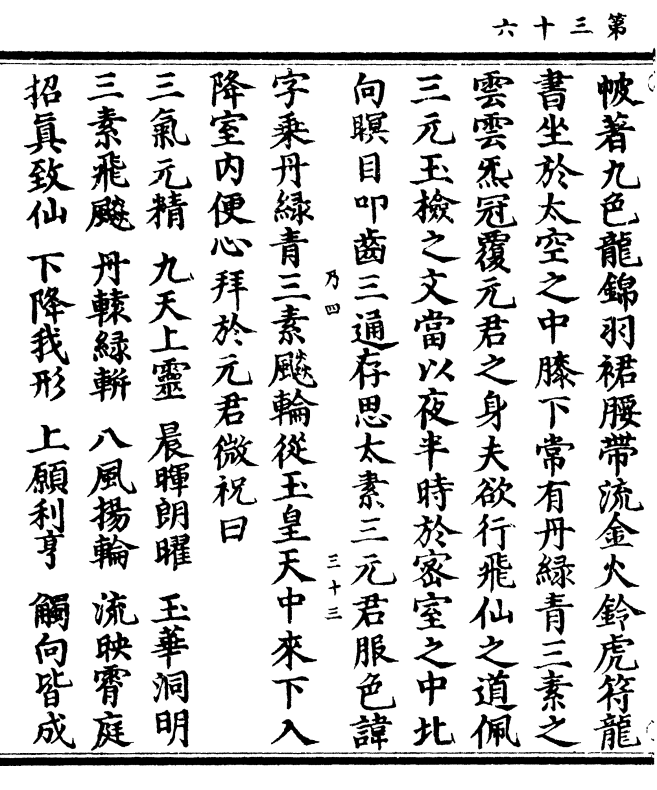 第三十六
帔著九色龍錦羽裙腰帶流金火鈴虎符龍
書坐於太空之中膝下常有丹綠青三素之
雲雲炁冠覆元君之身夫欲行飛仙之道佩
三元玉檢之文當以夜半時於密室之中北
向瞑目叩齒三通存思太素三元君服色諱
乃四
三十三
字乘丹綠青三素飈輪從玉皇天中來下入
降室內便心拜於元君微祝曰
三氣元精 九天上靈 晨暉朗曜 玉華洞明
三素飛飈 丹轅綠軿 八風揚輪 流映霄庭
招真致仙 下降我形 上願利亨 觸向皆成